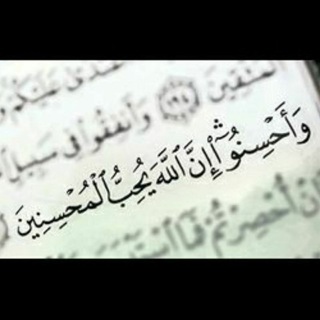 عَلَيْكُمْ
الْمُتَّقِينَ ١٩٤ وَأَنفِقُوا فِي سَبِيلِ
وَأَحْسِنُوٓا۟ ۛ إِنَّ ٱللَّهَ يُحِبُّ ٱلْمُحْسِنِينَ
أُحْصِرْتُمْ فَمَا ٱسْتَيْسَرَ